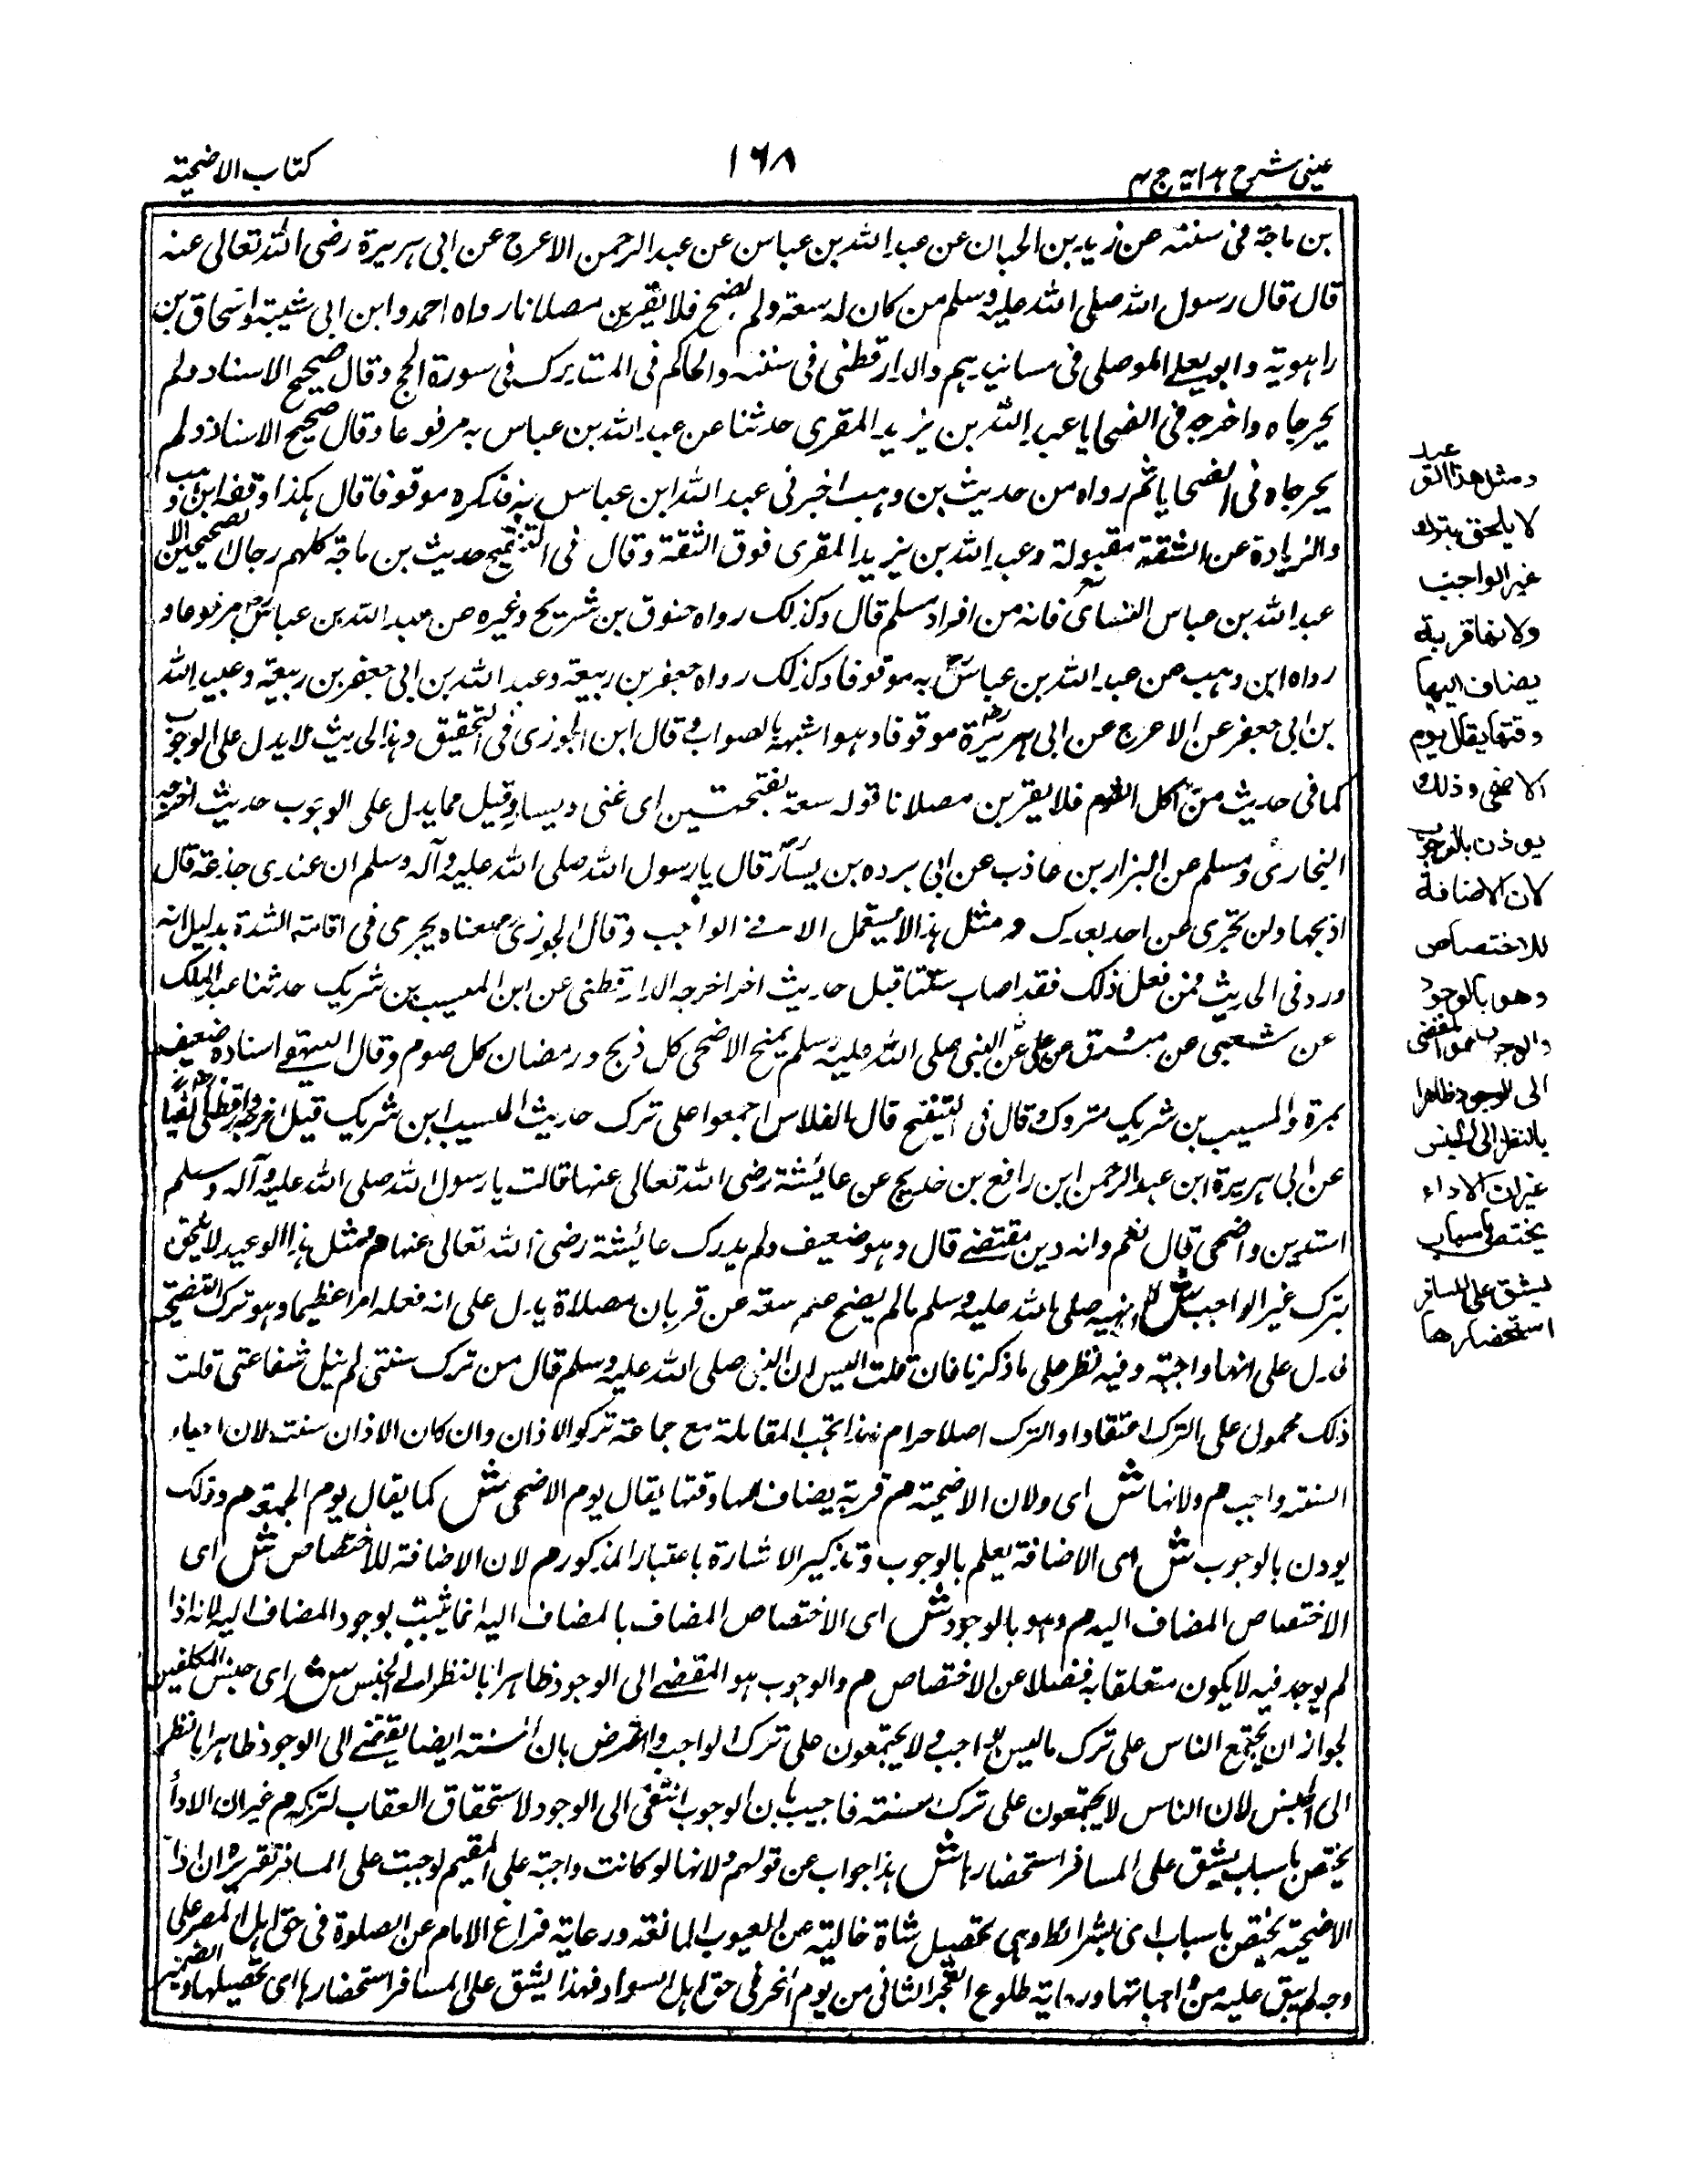 عینی شرح هدایه ج ۴
۱۶۸
کتاب الاضحیة
بن ماجة فی سننه عن زید بن الحبان عن عبد الله بن عباس عن عبد الرحمن الاعرج عن ابی هریرة رضی الله تعالی عنه
قال قال رسول الله صلی الله علیه وسلم من کان له سعة ولم یضح فلا یقربن مصلانا رواه احمد وابن ابی شیبة واسحاق بن
راهویة وابو یعلے الموصلی فی مسانیدهم والدارقطنی فی سننه والحاکم فی المستدرک فی سورة الحج وقال صحیح الاسناد ولم
یخرجاه واخرجه فی الضحایا عبد الله بن یزید المقری حدثنا عن عبد الله بن عباس به مرفوعا وقال صحیح الاسناد ولم
یخرجاه فی الضحایا ثم رواه من حدیث بن وهب اخبرنی عبد الله ابن عباس به فذکره موقوفا قال هکذا وقفه ابن وهب
والزیادة عن الثقة مقبولة وعبد الله بن یزید المقری فوق الثقة وقال فی التنقیح حدیث بن ماجة کلهم رجال الصحیحین الا
عبد الله بن عباس الغسانی فانه من افراد مسلم قال وکذلک رواه حنوق بن شریح وغیره عن عبد الله بن عباس مرفوعا و
رواه ابن وهب عن عبد الله بن عباس به موقوفا وکذلک رواه جعفر بن ربیعة وعبد الله بن ابی جعفر بن ربیعة وعبید الله
بن ابی جعفر عن الاعرج عن ابی هریرة موقوفا وهو اشبه بالصواب وقال ابن الجوزی فی التحقیق وهذا الحدیث لا یدل علی الوجوب
کما فی حدیث من اکل الثوم فلا یقربن مصلانا قوله سعة بفتحتین ای غنی ویسار وقیل مما یدل علی الوجوب حدیث اخرجه
البخاری ومسلم عن البزار بن عاذب عن ابی برده بن یسار قال یا رسول الله صلی الله علیه وآله وسلم ان عندی جذعة قال
اذبحها ولن تجزی عن احد بعدک ومثل هذا لا یستعمل الا فی الواجب وقال الجوزی معناه یجزی فی اقامة السنة بدلیل انه
ورد فی الحدیث فمن فعل ذلک فقد اصاب سنتنا قبل حدیث اخر اخرجه الدارقطنی عن ابن المسیب بن شریک حدثنا عبد الملک
عن شعبی عن مسروق عن علی عن النبی صلی الله علیه وسلم یمنح الاضحی کل ذبح ورمضان کل صوم وقال البیهقے اسناده ضعیف
بمرة والمسیب بن شریک متروک وقال فی التنقیح قال الفلاس اجمعوا علی ترک حدیث المسیب ابن شریک قیل اخرجه الدارقطنی ایضا
عن ابی هریرة ابن عبد الرحمن ابن رافع بن خدیج عن عائشة رضی الله تعالی عنها قالت یا رسول الله صلی الله علیه وآله وسلم
استدین واضحی قال نعم وانه دین مقتضے قال وهو ضعیف ولم یدرک عائشة رضی الله تعالی عنها م ومثل هذا الوعید لا یلحق
بترک غیر الواجب ش لان نهیه صلی الله علیه وسلم مالم یضح عنم سعة عن قربان مصلاة یدل علی انه فعله امرا عظیما وهو ترک التضحیة
فدل علی انها واجبة وفیه نظر علی ما ذکرنا فان قلت الیس ان النبی صلی الله علیه وسلم قال من ترک سنتی لم ینل شفاعتی قلت
ذلک محمول علی الترک اعتقادا والترک اصلا حرام لهذا تجب المقاتلة مع جماعة ترکوا الاذان وان کان الاذان سنت لان احیاء
السنة واجب م ولانها ش ای ولان الاضحیة م قربة یضاف الیها وقتها یقال یوم الاضحی ش کما یقال یوم الجمعة م وذلک
یودن بالوجوب ش ای الاضافة یعلم بالوجوب وتذکیر الاشارة باعتبار المذکور م لان الاضافة للاختصاص ش ای
الاختصاص المضاف الیه م وهو بالوجود ش ای الاختصاص المضاف بالمضاف الیه انما یثبت بوجود المضاف الیه لانه اذا
لم یوجد فیه لا یکون متعلقا به فضلا عن الاختصاص م والوجوب هو المفضے الی الوجود ظاهرا بالنظر الے الجنس ش ای جنس المکلفین
لجواز ان یجتمع الناس علی ترک ما لیس بواجب ولا یجتمعون علی ترک الواجب واعترض بان السنة ایضا یقتضے الی الوجود ظاهرا بالنظر
الی الجنس لان الناس لا یجتمعون علی ترک سنته فاجیب بان الوجوب انتفی الی الوجود لاستحقاق العقاب لترکه م غیر ان الاداء
یختص باسباب یشق علی المسافر استحضارها ش هذا جواب عن قولهم ولانها لو کانت واجبة علی المقیم لوجبت علی المسافر تقریره ان اداء
الاضحیة یختص باسباب ای بشرائط وهی تحصیل شاة خالیة عن العیوب المانعة ورعایة فراغ الامام عن الصلوة فی حق اهل المصر علی
وجه لم یبق علیه من واجباتها ورعایة طلوع الفجر الثانی من یوم النحر فی حق اهل السواد فهذا یشق علی المسافر استحضارها ای تحصیلها والضمیر
عید
ومثل هذا الو
لا یلحق بترک
غیر الواجب
ولانها قربة
یضاف الیها
وقتها یقال یوم
الاضحی وذلک
یوذن بالوجوب
لان الاضافة
للاختصاص
وهو بالوجود
والوجوب هو المفضی
الی الوجود ظاهرا
بالنظر الی الجنس
غیر ان الاداء
یختص باسباب
یشق علی المسافر
استحضارها